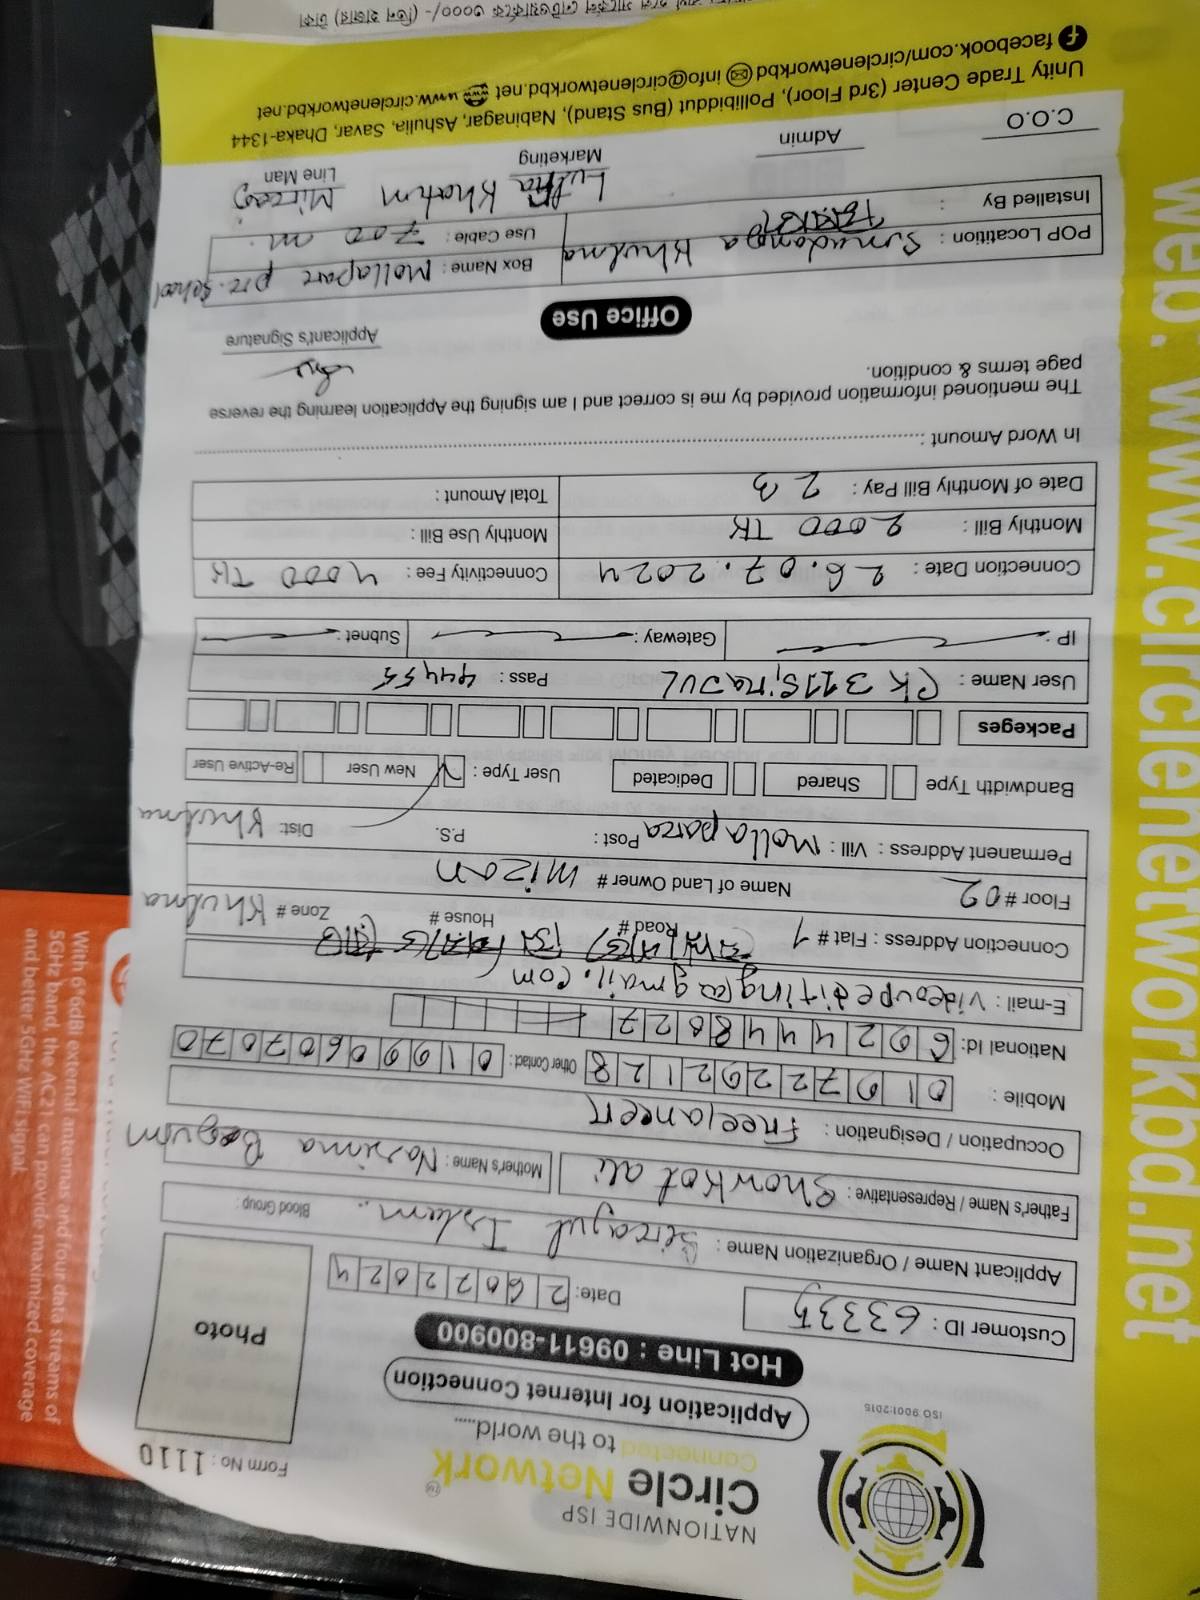 NATIONWIDE ISP
Circle Network
Connected to the world......
ISO 9001:2015
Form No : 1110
Application for Internet Connection
Hot Line : 09611-800900
Photo
Customer ID : 63335
Date: 26072024
Applicant Name / Organization Name : Sirajul Islam
Blood Group :
Father's Name / Representative : Showkot ali
Mother's Name : Nasima Begum
Occupation / Designation : Freelancer
Mobile :
Other Contact :
National Id:
E-mail : videoupediting@gmail.com
Connection Address : Flat # 1 Road # House # Zone # Khulna
Floor # 02 Name of Land Owner # mizan
Permanent Address : Vill : Molla para Post : P.S. Dist: Khulna
Bandwidth Type Shared Dedicated User Type : New User Re-Active User
Packeges
User Name : CK 311SiraJUL Pass : 44455
IP : Gateway : Subnet :
Connection Date : 26.07.2024 Connectivity Fee : 4000 TK
Monthly Bill : 2000 TK Monthly Use Bill :
Date of Monthly Bill Pay : 23 Total Amount :
In Word Amount :
The mentioned information provided by me is correct and I am signing the Application learning the reverse
page terms & condition.
Applicant's Signature
Office Use
POP Locatition : Sonadanga Khulna Box Name : Mollapara pre. School
Installed By : Use Cable : 700 m.
Lutfa Khatm
C.O.O Admin Marketing Line Man
Unity Trade Center (3rd Floor), Pollibiddut (Bus Stand), Nabinagar, Ashulia, Savar, Dhaka-1344
facebook.com/circlenetworkbd info@circlenetworkbd.net www.circlenetworkbd.net
web: www.circlenetworkbd.net
With 6*6dBi external antennas and four data streams of
5GHz band, the AC21 can provide maximized coverage
and better 5GHz WiFi signal.
৩০০০/- (তিন হাজার) টাকা